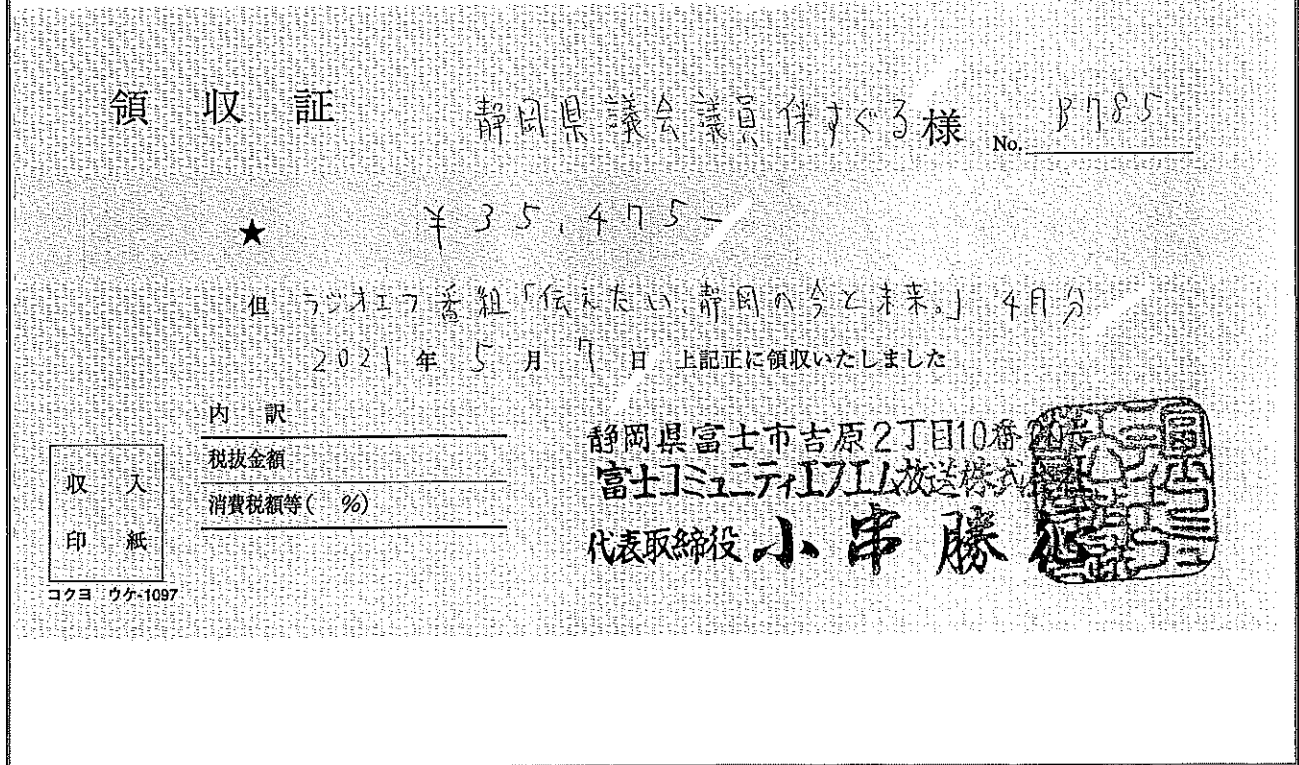 領収証 静岡県議会議員 伴すぐる 様 No. B785
★ ¥35,475-
但 ラジオエフ番組「伝えたい、静岡の今と未来。」 4月分
2021年5月7日 上記正に領収いたしました
内訳
税抜金額
消費税額等( %)
収入
印紙
コクヨ ウケ-1097
静岡県富士市吉原2丁目10番20号
富士コミュニティエフエム放送株式会社
代表取締役 小串勝